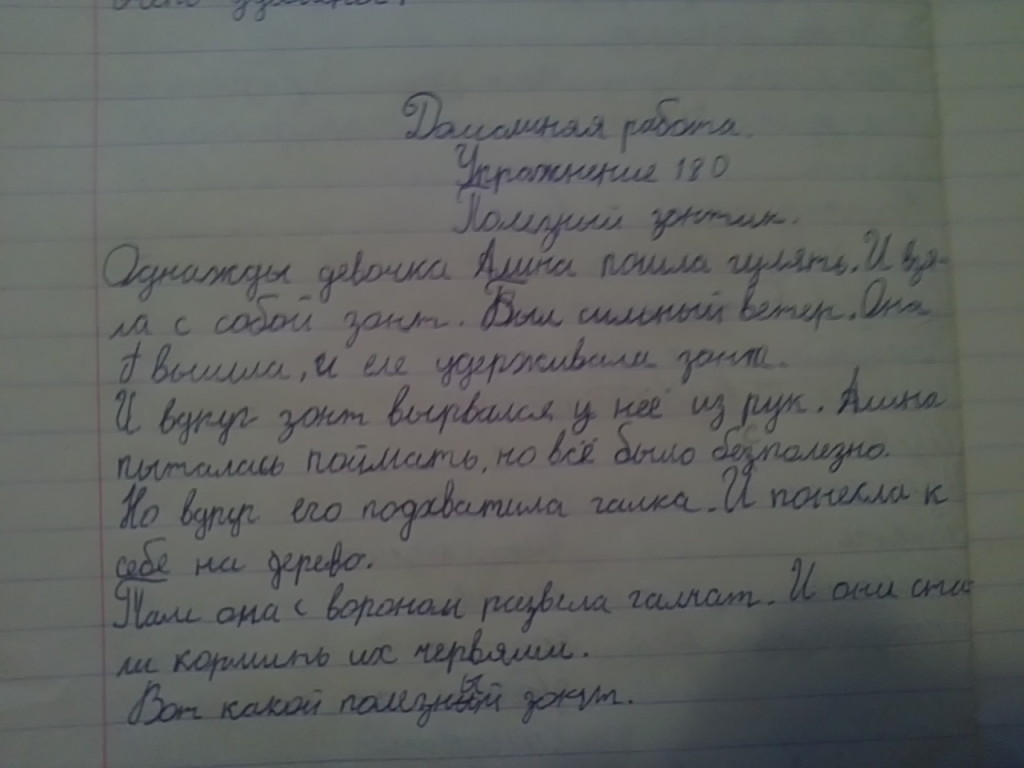 Домашняя работа.
Упражнение 180
Полезный зонтик.
Однажды девочка Алина пошла гулять. И взя-
ла с собой зонт. Был сильный ветер. Она
вышла, и еле удерживала зонт.
И вдруг зонт вырвался у неё из рук. Алина
пыталась поймать, но всё было безполезно.
Но вдруг его подхватила галка. И понесла к
себе на дерево.
Там она с вороном развела галчат. И они ста-
ли кормить их червями.
Вот какой полезный зонт.